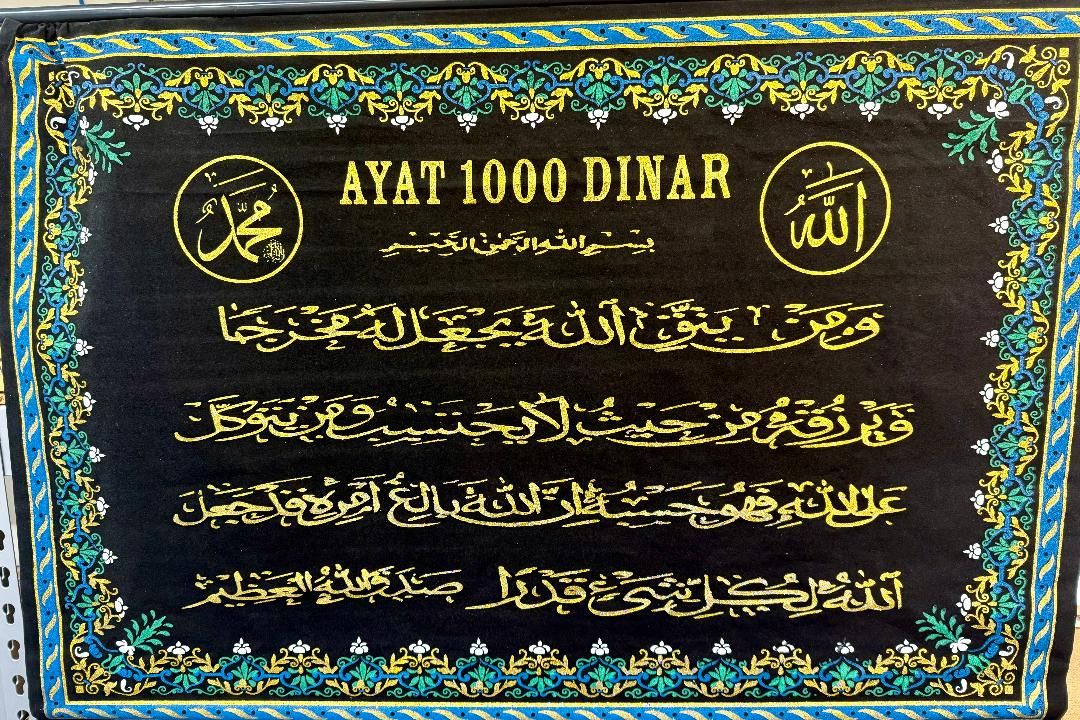 AYAT 1000 DINAR
الله
محمد
بسم الله الرحمن الرحيم
ومن يتق الله يجعل له مخرجا
ويرزقه من حيث لا يحتسب ومن يتوكل
على الله فهو حسبه إن الله بالغ أمره قد جعل
الله لكل شيء قدرا صدق الله العظيم